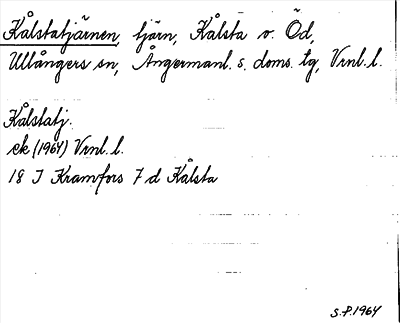 Kålstatjärnen, tjärn, Kålsta o. Öd,
Ullångers sn, Ångermanl. s. doms. tg, Vrnl. l.
Kålstatj.
ek (1964) Vrnl. l.
18 I Kramfors 7 d Kålsta
S.P. 1964